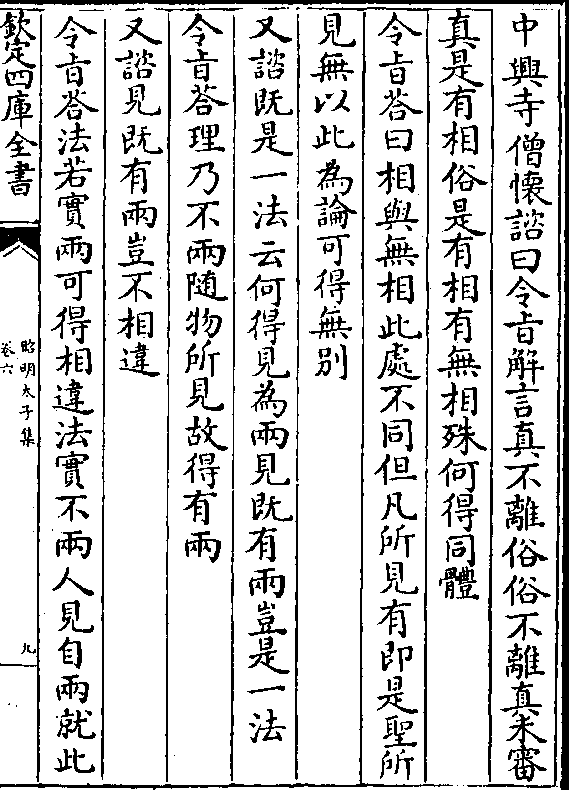 中興寺僧懷諮曰令旨解言真不離俗俗不離真未審
真是有相俗是有相有無相殊何得同體
令旨荅曰相與無相此處不同但凡所見有即是聖所
見無以此為論可得無別
又諮既是一法云何得見為兩見既有兩豈是一法
令旨荅理乃不兩随物所見故得有兩
又諮見既有兩豈不相違
令旨荅法若實兩可得相違法實不兩人見自兩就此
欽定四庫全書
昭明太子集
卷六
九